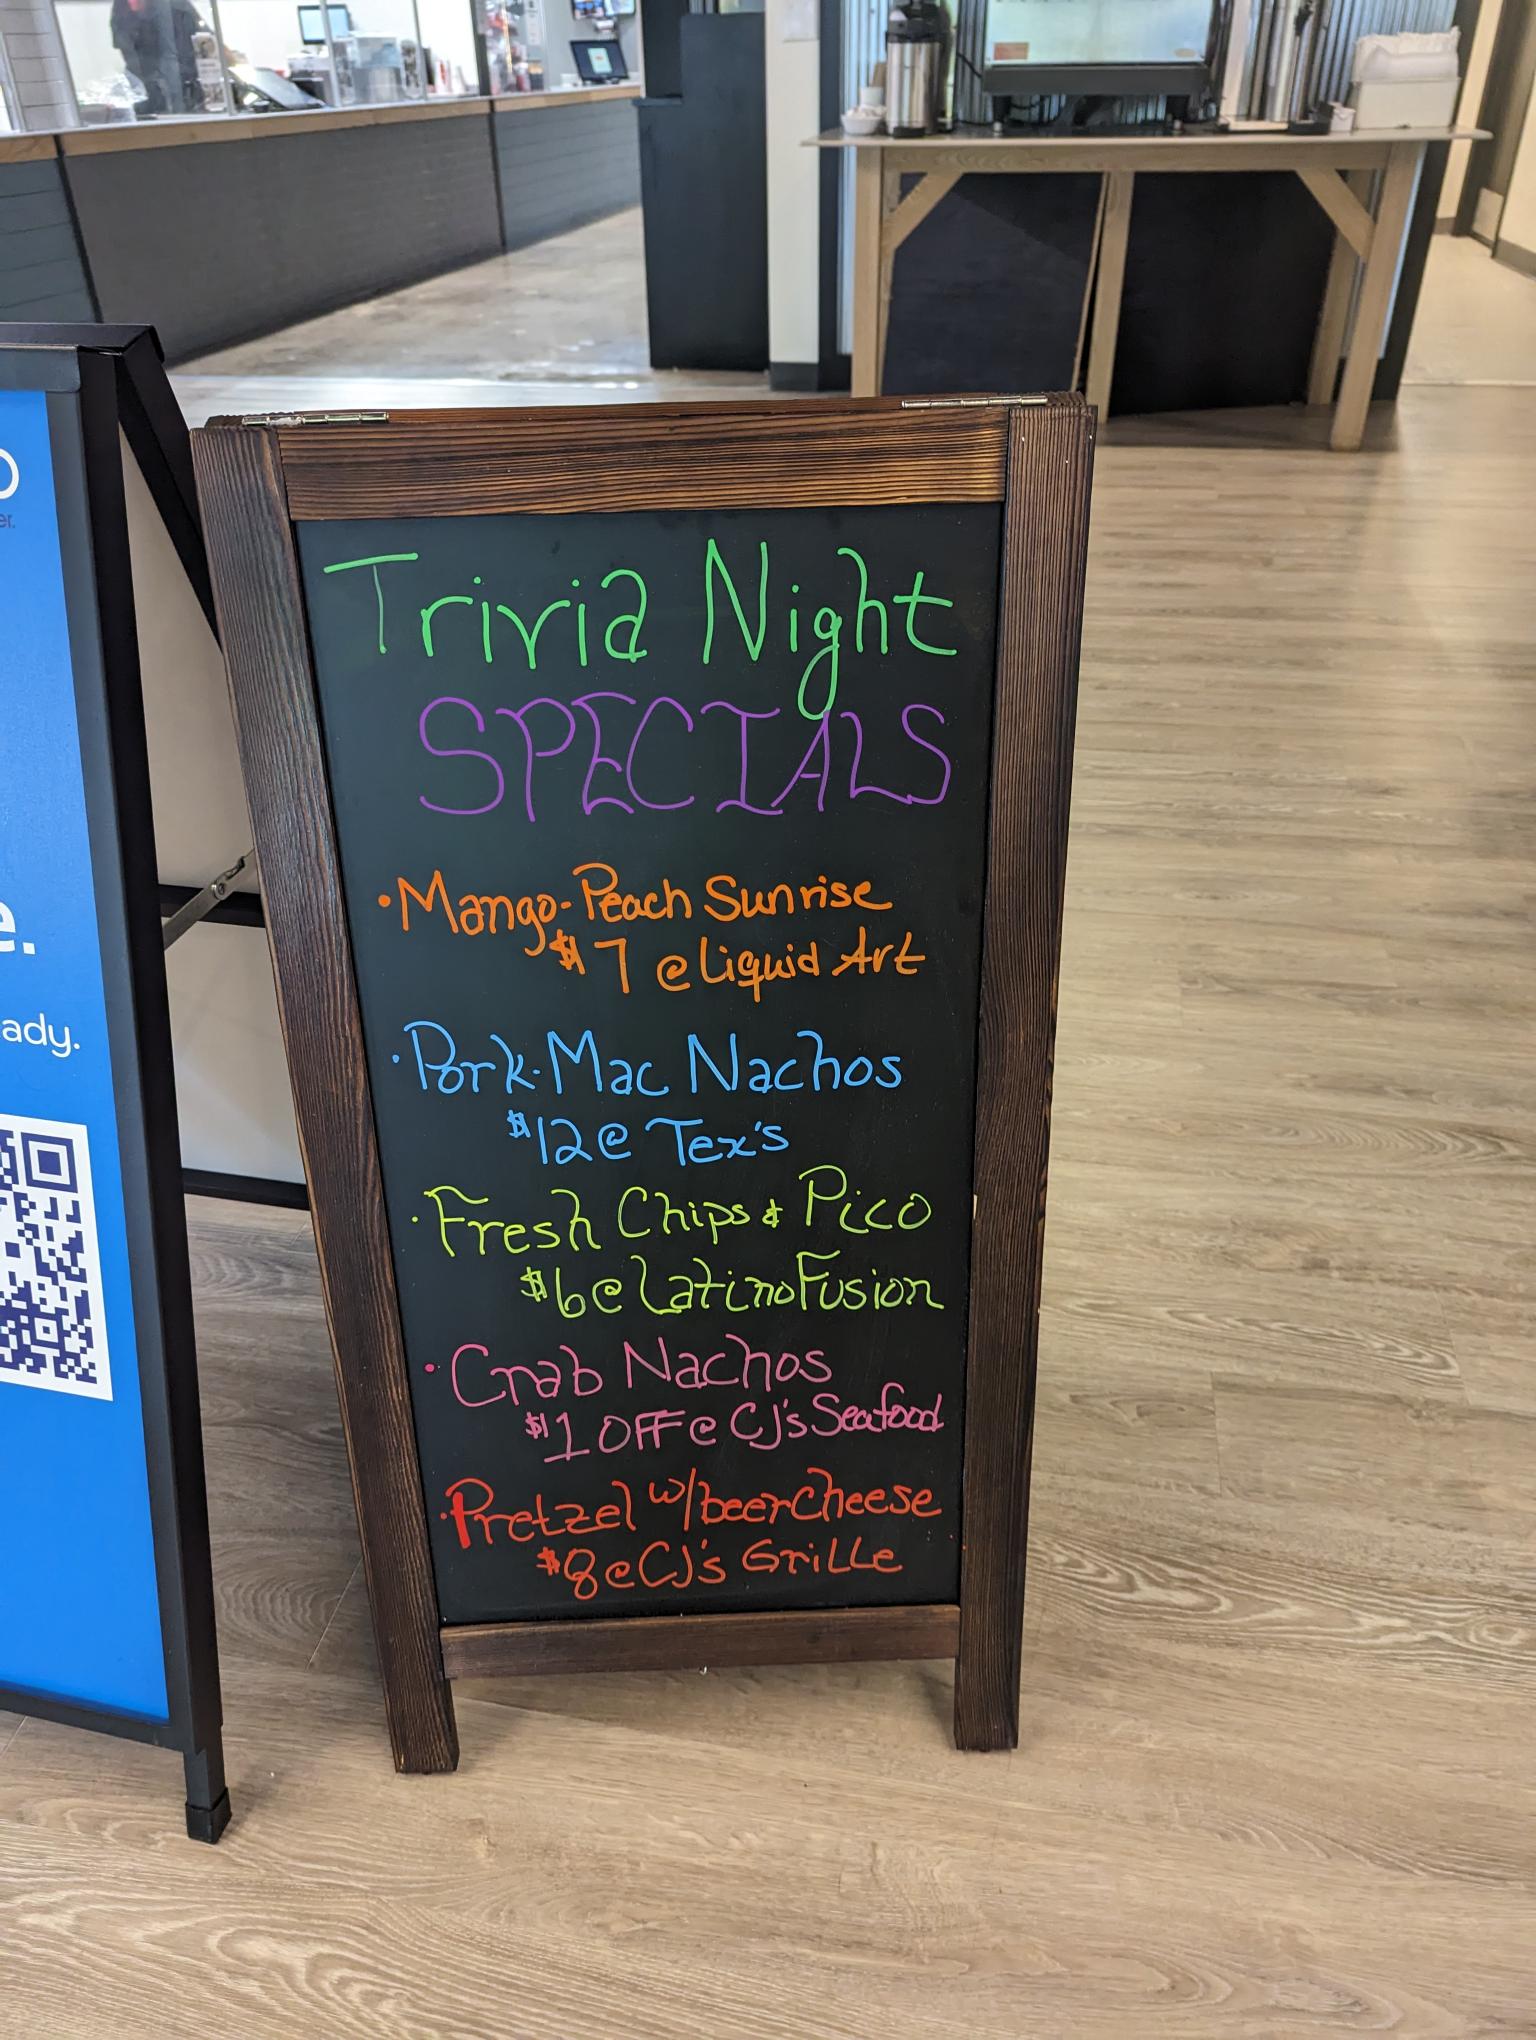 Trivia Night
SPECIALS
• Mango-Peach Sunrise
$7 @ Liquid Art
• Pork-Mac Nachos
$12 @ Tex's
• Fresh Chips & Pico
$6 @ Latino Fusion
• Crab Nachos
$1 OFF @ CJ's Seafood
• Pretzel w/beer cheese
$8 @ CJ's Grille
e.
ady.